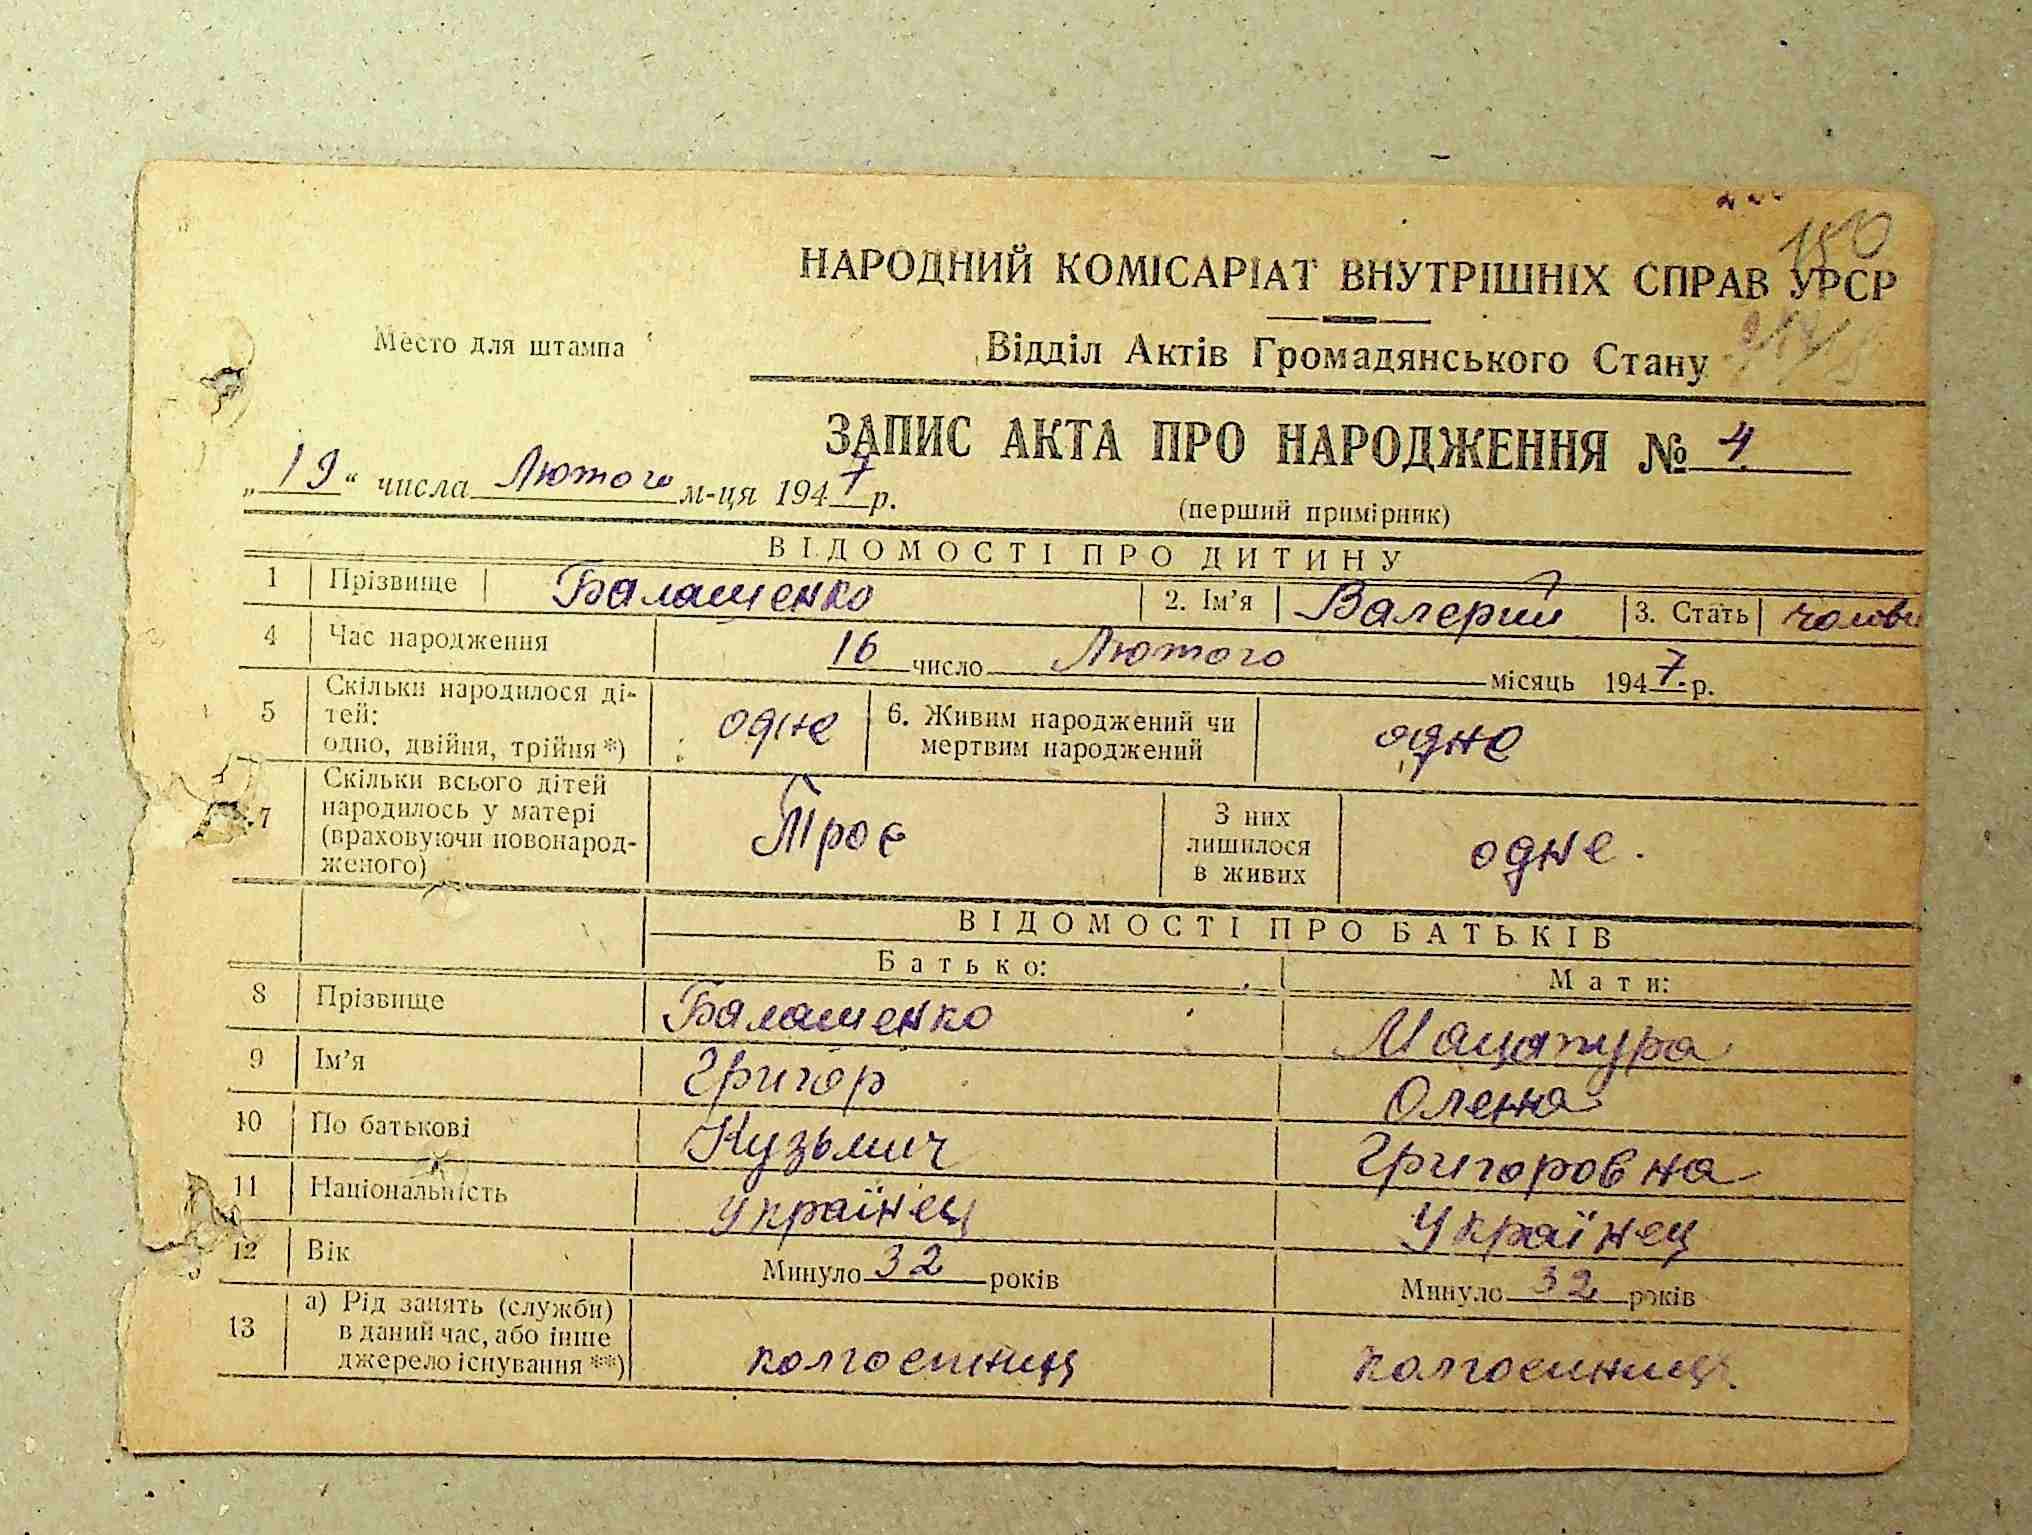 150
НАРОДНИЙ КОМІСАРІАТ ВНУТРІШНІХ СПРАВ УРСР
Место для штампа
Відділ Актів Громадянського Стану
ЗАПИС АКТА ПРО НАРОДЖЕННЯ № 4
„19“ числа Лютого м-ця 1947 р.
(перший примірник)
ВІДОМОСТІ ПРО ДИТИНУ
1 Прізвище Балашенко 2. Ім’я Валерий 3. Стать чолові
4 Час народження 16 число Лютого місяць 1947 р.
5 Скільки народилося ді-
тей:
одно, двійня, трійня *) одне 6. Живим народжений чи
мертвим народжений одне
7 Скільки всього дітей
народилось у матері
(враховуючи новонарод-
женого) Троє З них
лишилося
в живих одне.
ВІДОМОСТІ ПРО БАТЬКІВ
Батько: Мати:
8 Прізвище Балашенко Мацапура
9 Ім’я Григор Олена
10 По батькові Кузьмич Григоровна
11 Національність Українец Українец
12 Вік Минуло 32 років Минуло 32 років
13 а) Рід занять (служби)
в даний час, або інше
джерело існування **) колгоспниц колгоспниц.